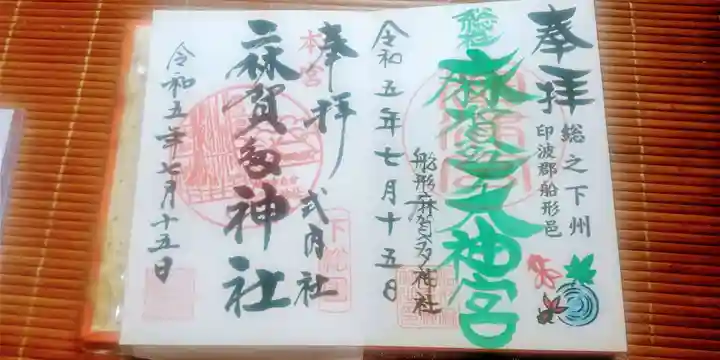 奉拝
総之下州
印波郡船形邑
麻賀多大神宮
船形麻賀多神社
令和五年七月十五日
奉拝
式内社
本宮
麻賀多神社
令和五年七月十五日